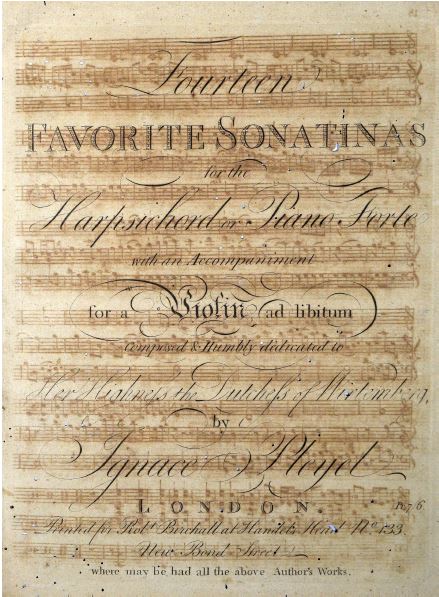 Fourteen
FAVORITE SONATINAS
for the
Harpsichord or Piano Forte
with an Accompaniment
for a Violin ad libitum
Composed & Humbly dedicated to
Her Highness the Dutchess of Wirtemberg,
by
Ignace Pleyel
LONDON.
Printed for Robt. Birchall at Handel's Head No. 133
New Bond Street
where may be had all the above Author's Works.